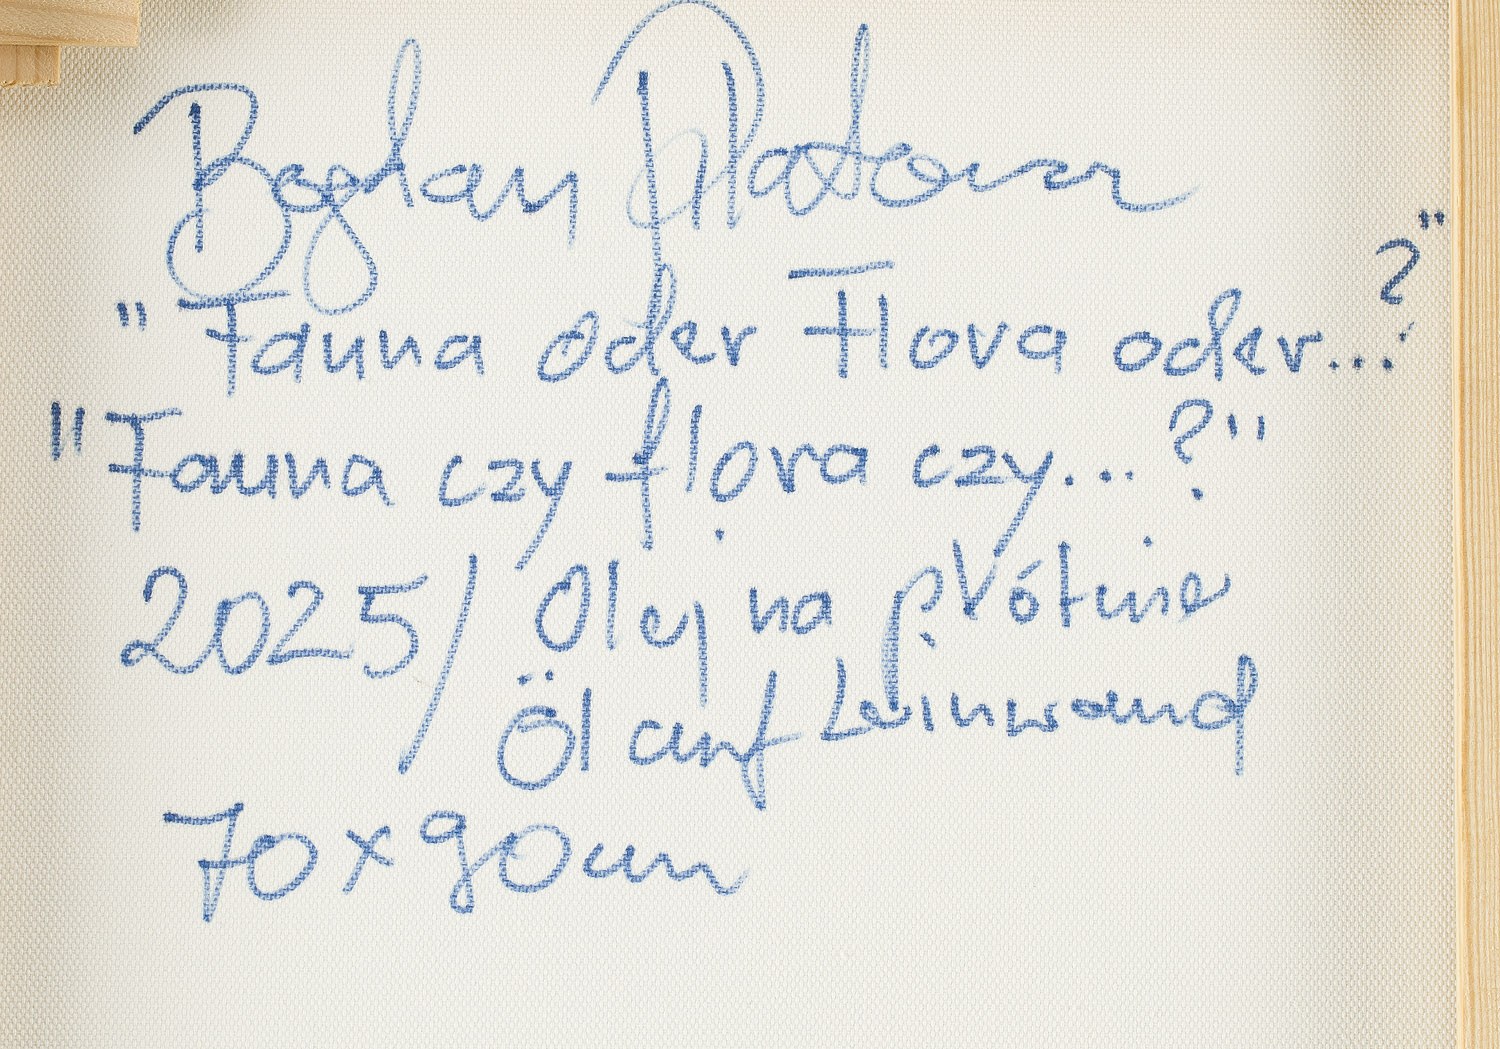 Bogdan Platowar
"Fauna oder Flora oder...?"
"Fauna czy flora czy...?"
2025/ Olej na płótnie
Öl auf Leinwand
70x90cm